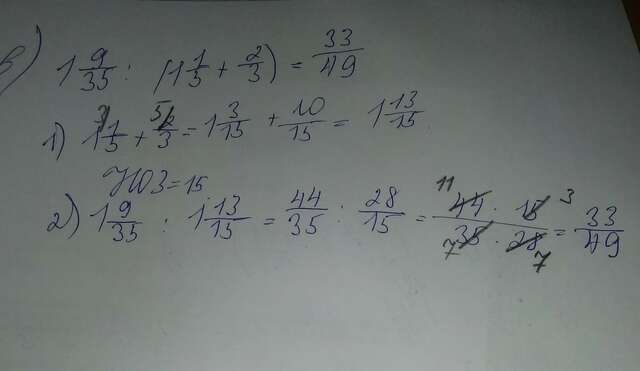 в) 1 9/35 : (1 1/5 + 2/3) = 33/49
1) 1 1/5 + 2/3 = 1 3/15 + 10/15 = 1 13/15
НОЗ = 15
2) 1 9/35 : 1 13/15 = 44/35 : 28/15 = 44 · 15 / 35 · 28 = 33/49